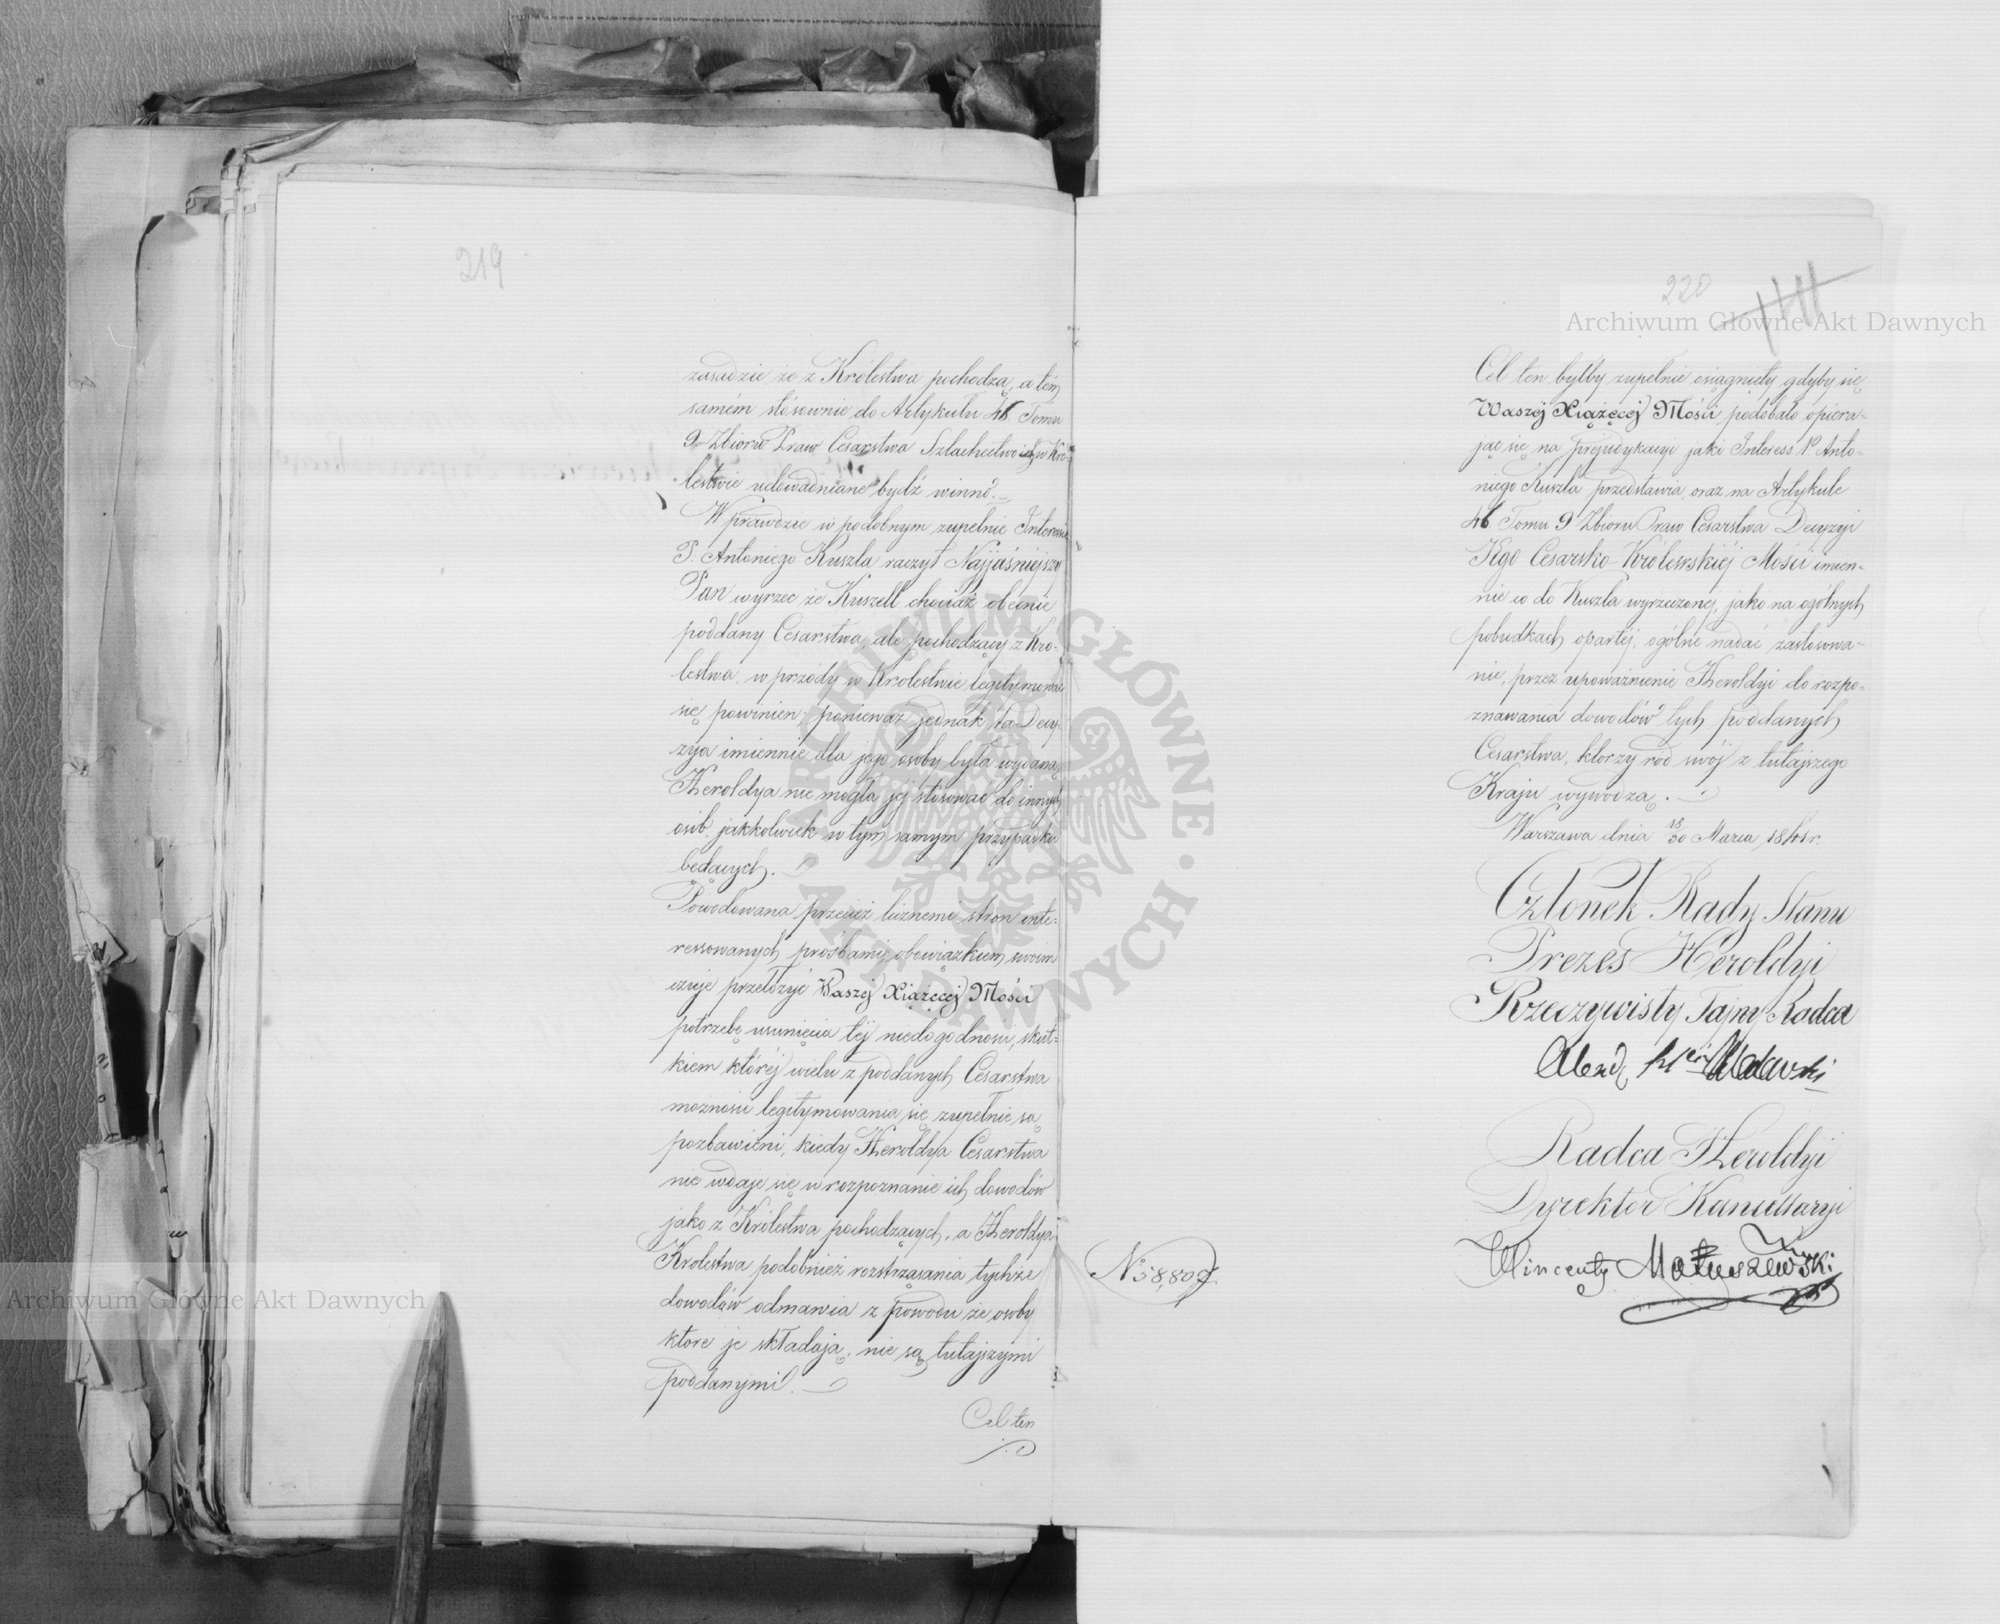 219
zasadzie że z Królestwa pochodzą, a tém
samém stósownie do Artykułu 46 Tomu
9 Zbioru Praw Cesarstwa Szlachectwo ich w Kró-
lestwie udowadniane bydź winno. —
Wprawdzie w podobnym zupełnie Interesie
P. Antoniego Kuszla raczył Najjaśniejszy
Pan wyrzec że Kuszell chociaż obecnie
poddany Cesarstwa, ale pochodzący z Kró-
lestwa, w przódy w Królestwie legitymować
się powinien, ponieważ jednak ta Decy-
zya imiennie dla jego osoby była wydaną,
Heroldya nie mogła jej stósować do innych
osób jakkolwiek w tym samym przypadku
będących. —
Powodowana przecież licznemi stron inte-
ressowanych prośbami, obowiązkiem swoim
czuje przełożyć Waszéj Xiążęcéj Mości
potrzebę usunięcia téj niedogodności, skut-
kiem któréj wielu z poddanych Cesarstwa
możności legitymowania się zupełnie są
pozbawieni, kiedy Heroldya Cesarstwa
nie wdaje się w rozpoznanie ich dowodów
jako z Królestwa pochodzących, a Heroldya
Krolestwa podobnież rozstrząsania tychże
dowodów odmawia z powodu że osoby
które je składają, nie są tutajszymi
poddanymi. —
Cel ten
220
Cel ten byłby zupełnie osiągnięty gdyby się
Waszéj Xiążęcéj Mości podobało opiera-
jąc się na prejudykacyi jaki Interess P. Anto-
niego Kuszla przedstawia oraz na Artykule
46 Tomu 9 Zbioru Praw Cesarstwa Decyzyi
Jego Cesarsko-Królewskiéj Mości imien-
nie co do Kuszla wyrzeczonej, jako na ogólnych
pobudkach opartéj, ogólne nadać zastosowa-
nie, przez upoważnienie Heroldyi do rozpo-
znawania dowodów tych poddanych
Cesarstwa, którzy ród swój z tutajszego
Kraju wywodzą. —
Warszawa dnia 18/30 Marca 1841 r.
Członek Rady Stanu
Prezes Heroldyi
Rzeczywisty Tajny Radca
Radca Heroldyi
Dyrektor Kancellaryi
Wincenty Matuszewski
Archiwum Główne Akt Dawnych
Archiwum Główne Akt Dawnych
ARCHIWUM GŁÓWNE AKT DAWNYCH